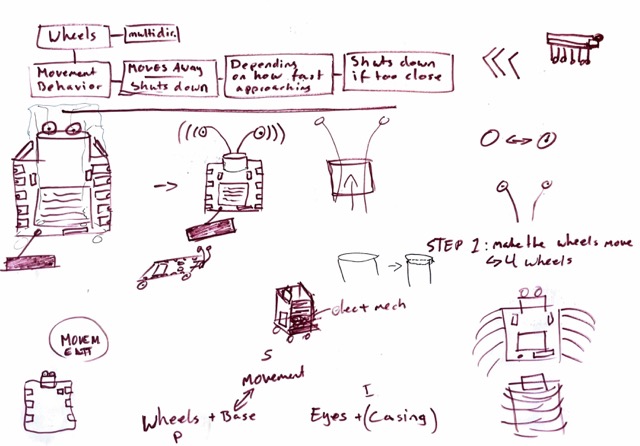 Wheels
multidir.
Movement
Behavior
MOVES AWAY
Shuts down
Depending
on how fast
approaching
Shuts down
if too close
STEP 1: make the wheels move
↳ 4 wheels
elect mech
MOVEM
S
Movement
Wheels + Base
P
I
Eyes + (Casing)